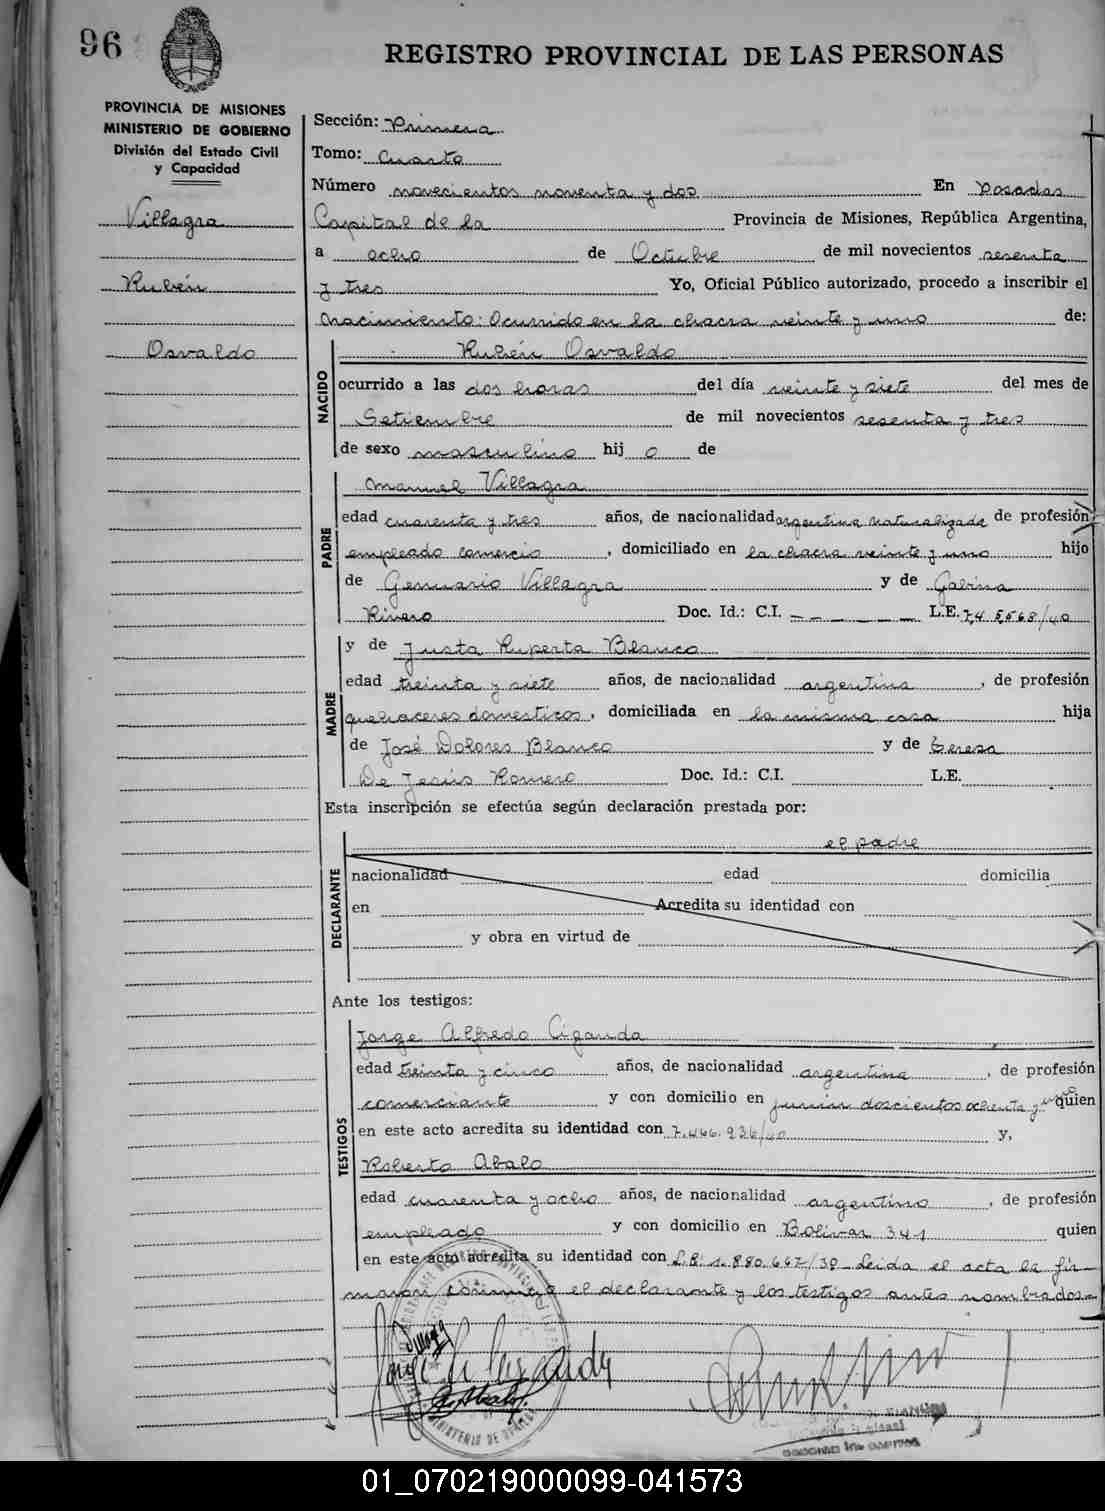 96
REGISTRO PROVINCIAL DE LAS PERSONAS
PROVINCIA DE MISIONES
MINISTERIO DE GOBIERNO
División del Estado Civil
y Capacidad
Villagra
Rubén
Osvaldo
Sección: Primera
Tomo: Cuarto
Número novecientos noventa y dos En Posadas
Capital de la Provincia de Misiones, República Argentina,
a ocho de Octubre de mil novecientos sesenta
y tres Yo, Oficial Público autorizado, procedo a inscribir el
nacimiento: Ocurrido en la chacra veinte y uno de:
NACIDO
Rubén Osvaldo
ocurrido a las dos horas del día veinte y siete del mes de
Setiembre de mil novecientos sesenta y tres
de sexo masculino hij o de
PADRE
Manuel Villagra
edad cuarenta y tres años, de nacionalidad argentina naturalizado de profesión
empleado comercio, domiciliado en la chacra veinte y uno hijo
de Genuario Villagra y de Gabina
Rivero Doc. Id.: C.I. — — — — — L.E. 7,4 5,568/40
MADRE
y de Justa Ruperta Blanco
edad treinta y siete años, de nacionalidad argentina, de profesión
quehaceres domesticos, domiciliada en la misma casa hija
de José Dolores Blanco y de Teresa
De Jesús Romero Doc. Id.: C.I. L.E.
Esta inscripción se efectúa según declaración prestada por:
DECLARANTE
el padre
nacionalidad edad domicilia
en Acredita su identidad con
y obra en virtud de
Ante los testigos:
TESTIGOS
Jorge Alfredo Ciganda
edad treinta y cinco años, de nacionalidad argentina, de profesión
comerciante y con domicilio en junin doscientos ochenta y uno quien
en este acto acredita su identidad con 7.466.936/40 y,
Roberto Abalo
edad cuarenta y ocho años, de nacionalidad argentino, de profesión
empleado y con domicilio en Bolivar 341 quien
en este acto acredita su identidad con L.E. 1.880.667/39 - Leida el acta la fir-
man conmigo el declarante y los testigos antes nombrados.-
01_070219000099-041573